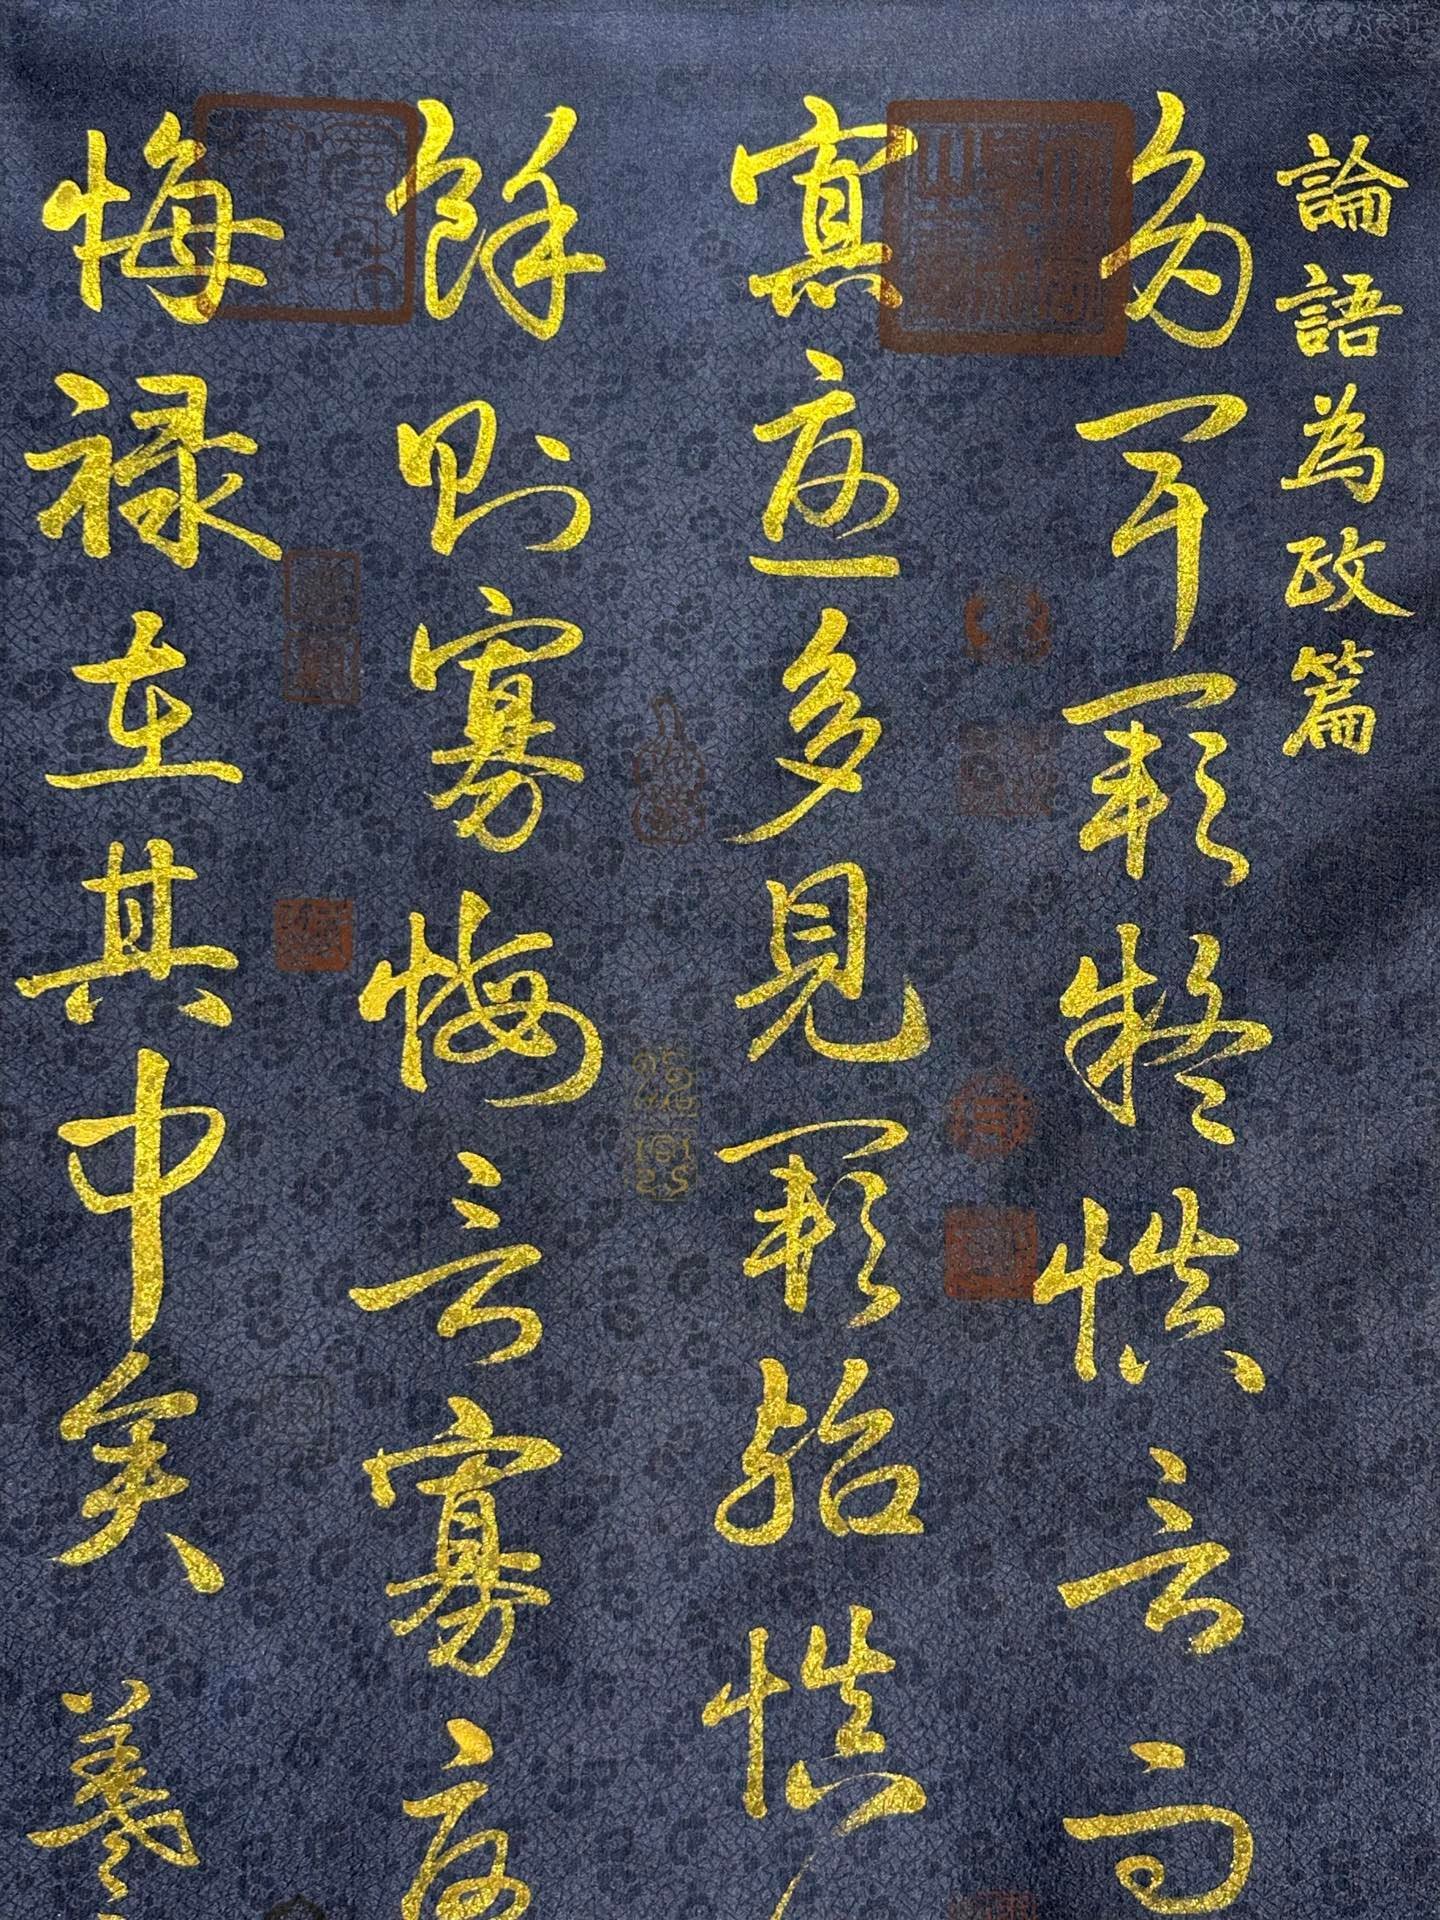 論語為政篇
多聞闕疑慎言其
寡尤多見闕殆慎
餘則寡悔言寡尤
悔祿在其中矣
羲